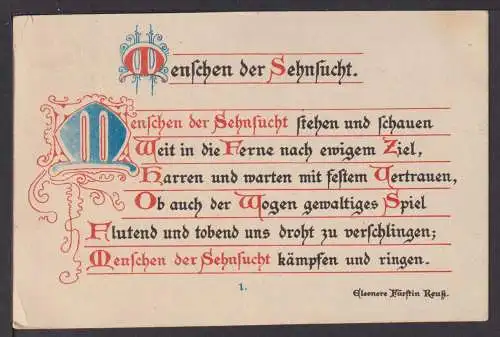 Menschen der Sehnsucht.
Menschen der Sehnsucht stehen und schauen
Weit in die Ferne nach ewigem Ziel,
Harren und warten mit festem Vertrauen,
Ob auch der Wogen gewaltiges Spiel
Flutend und tobend uns droht zu verschlingen;
Menschen der Sehnsucht kämpfen und ringen.
1.
Eleonore Fürstin Reuß.